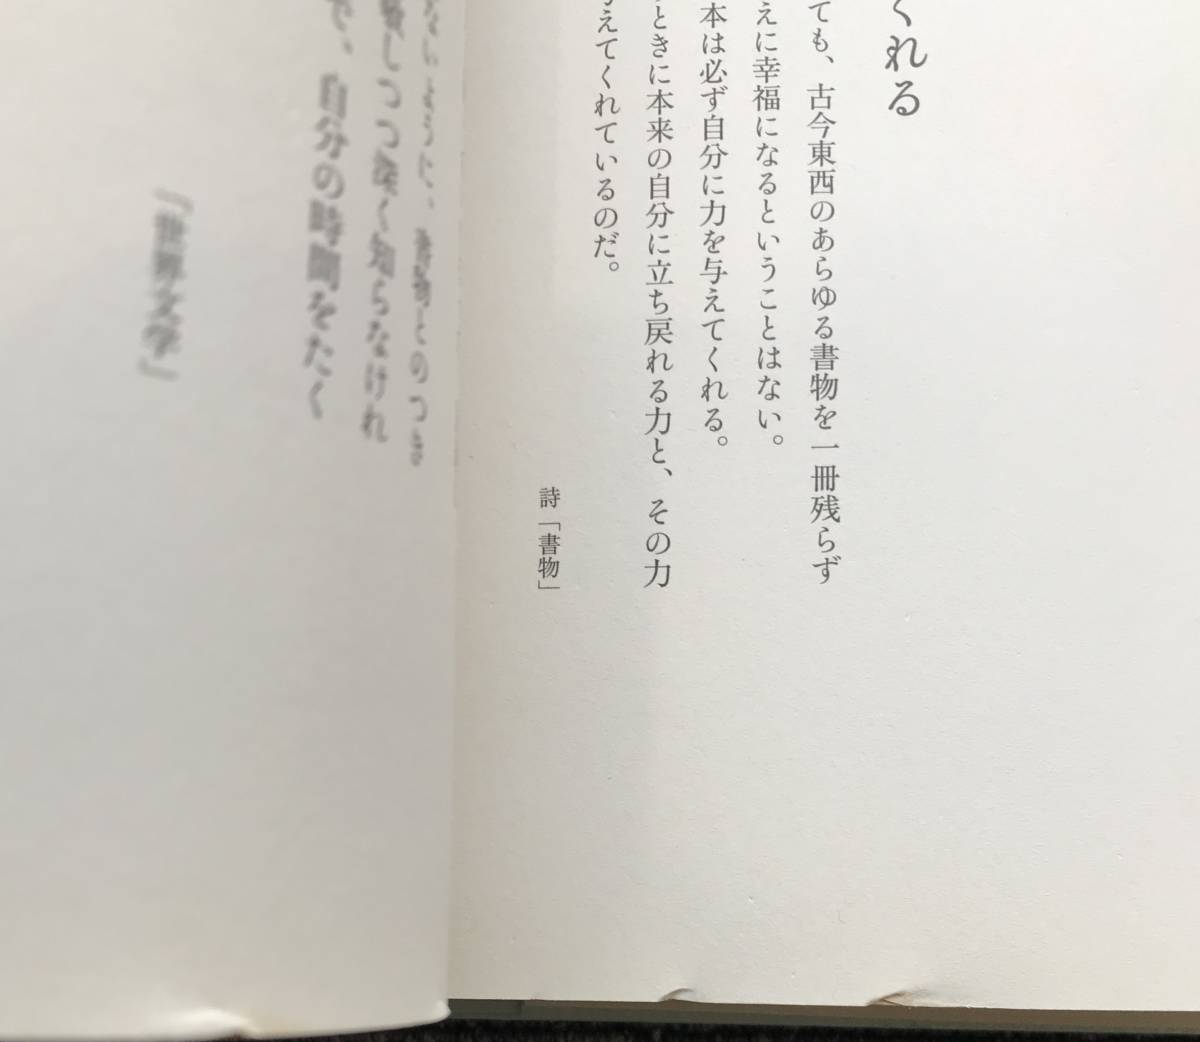 くれる
ても、古今東西のあらゆる書物を一冊残らず
えに幸福になるということはない。
本は必ず自分に力を与えてくれる。
ときに本来の自分に立ち戻れる力と、その力
えてくれているのだ。
詩「書物」
ないように、書物とのつき
しつつ深く知らなけれ
、自分の時間をたく
『世界文学』